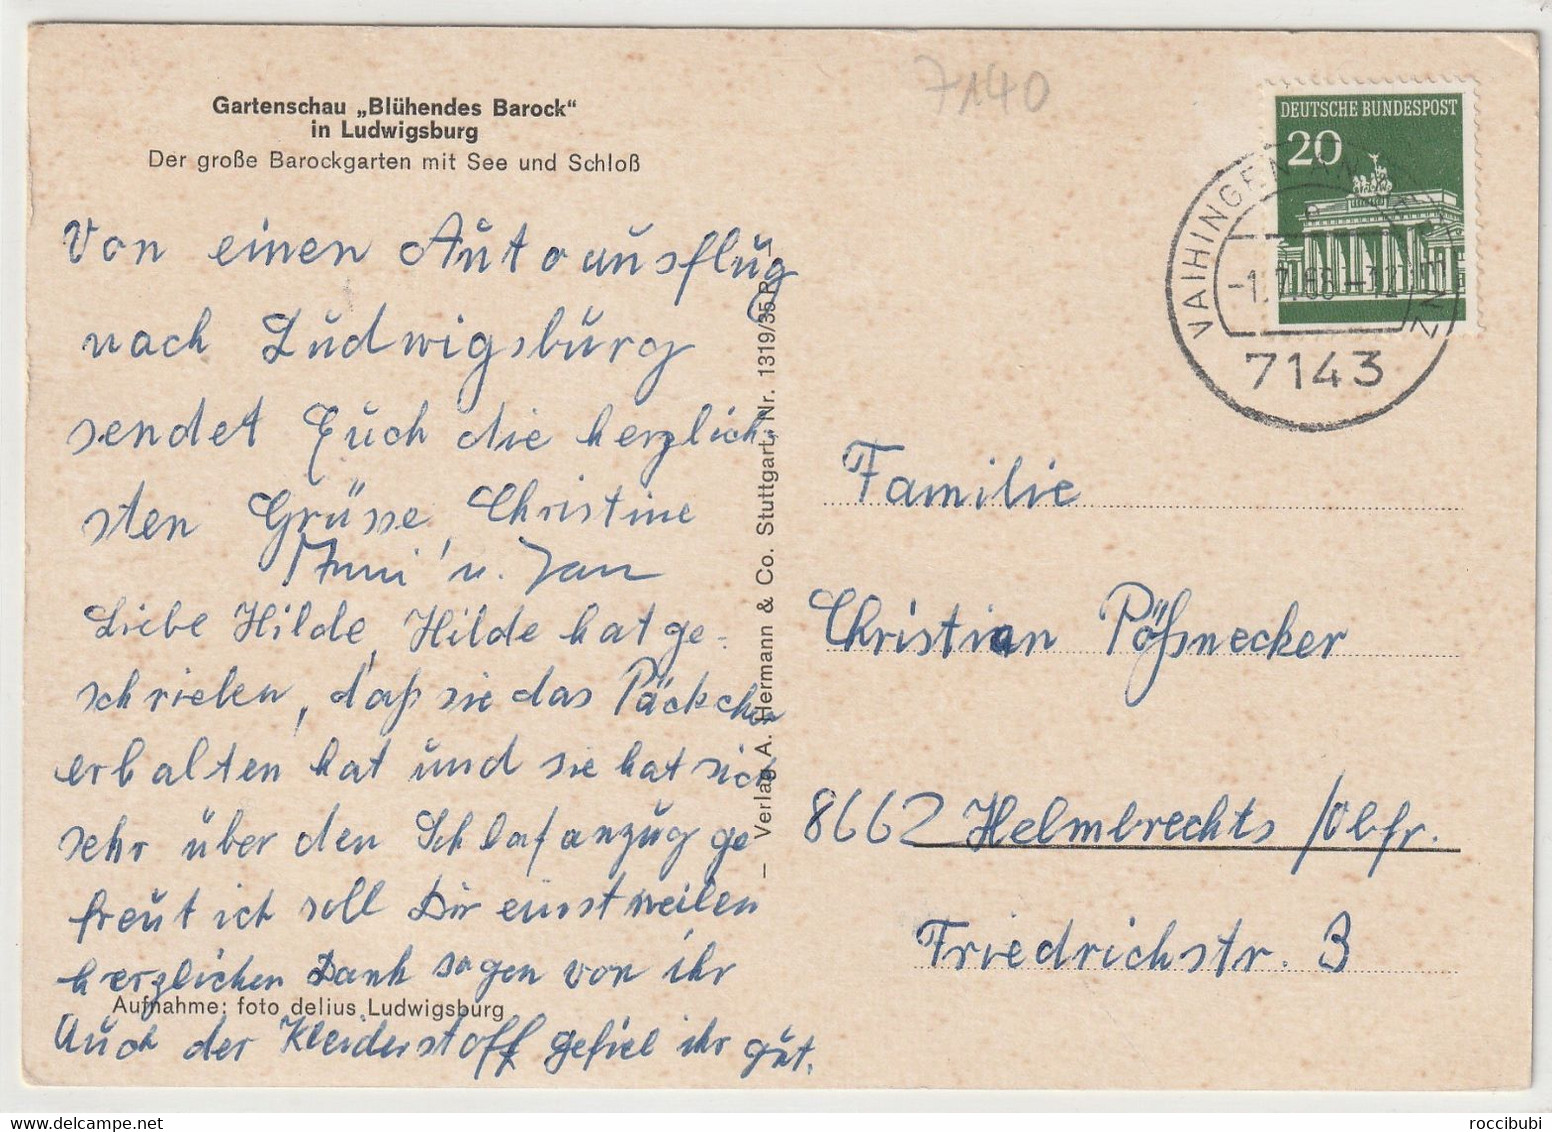 7140
Gartenschau „Blühendes Barock“
in Ludwigsburg
Der große Barockgarten mit See und Schloß
DEUTSCHE BUNDESPOST
20
VAIHINGEN AN DER ENZ
7143
Von einen Autoausflug
nach Ludwigsburg
sendet Euch die herzlich-
sten Grüsse Christine
u. Jan
Liebe Hilde, Hilde hat ge-
schrieben, daß sie das Päckchen
erhalten hat und sie hat sich
sehr über den Schlafanzug ge
freut ich soll Dir einstweilen
herzlichen Dank sagen von ihr
Auch der Kleiderstoff gefiel ihr gut.
Aufnahme: foto delius Ludwigsburg
– Verlag A. Hermann & Co. Stuttgart, Nr. 1319/35 R –
Familie
Christian Pößnecker
8662 Helmbrechts /Obfr.
Friedrichstr. 3
roccibubi